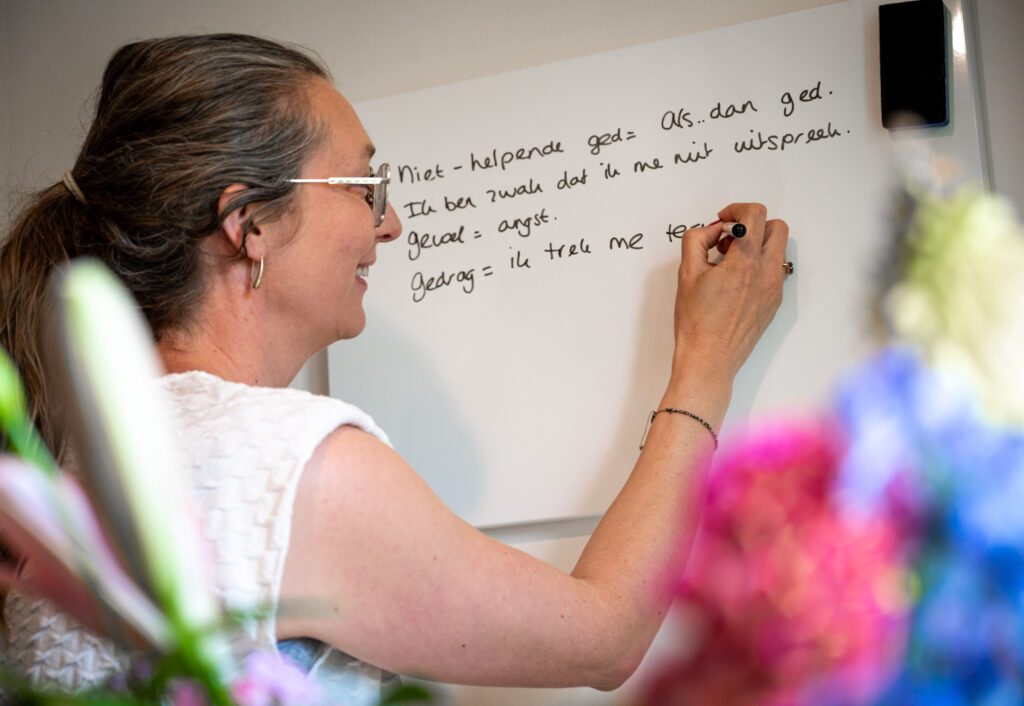 Niet-helpende ged= Als..dan ged.
Ik ben zwak dat ik me niet uitspreek.
gevoel = angst.
gedrag = ik trek me